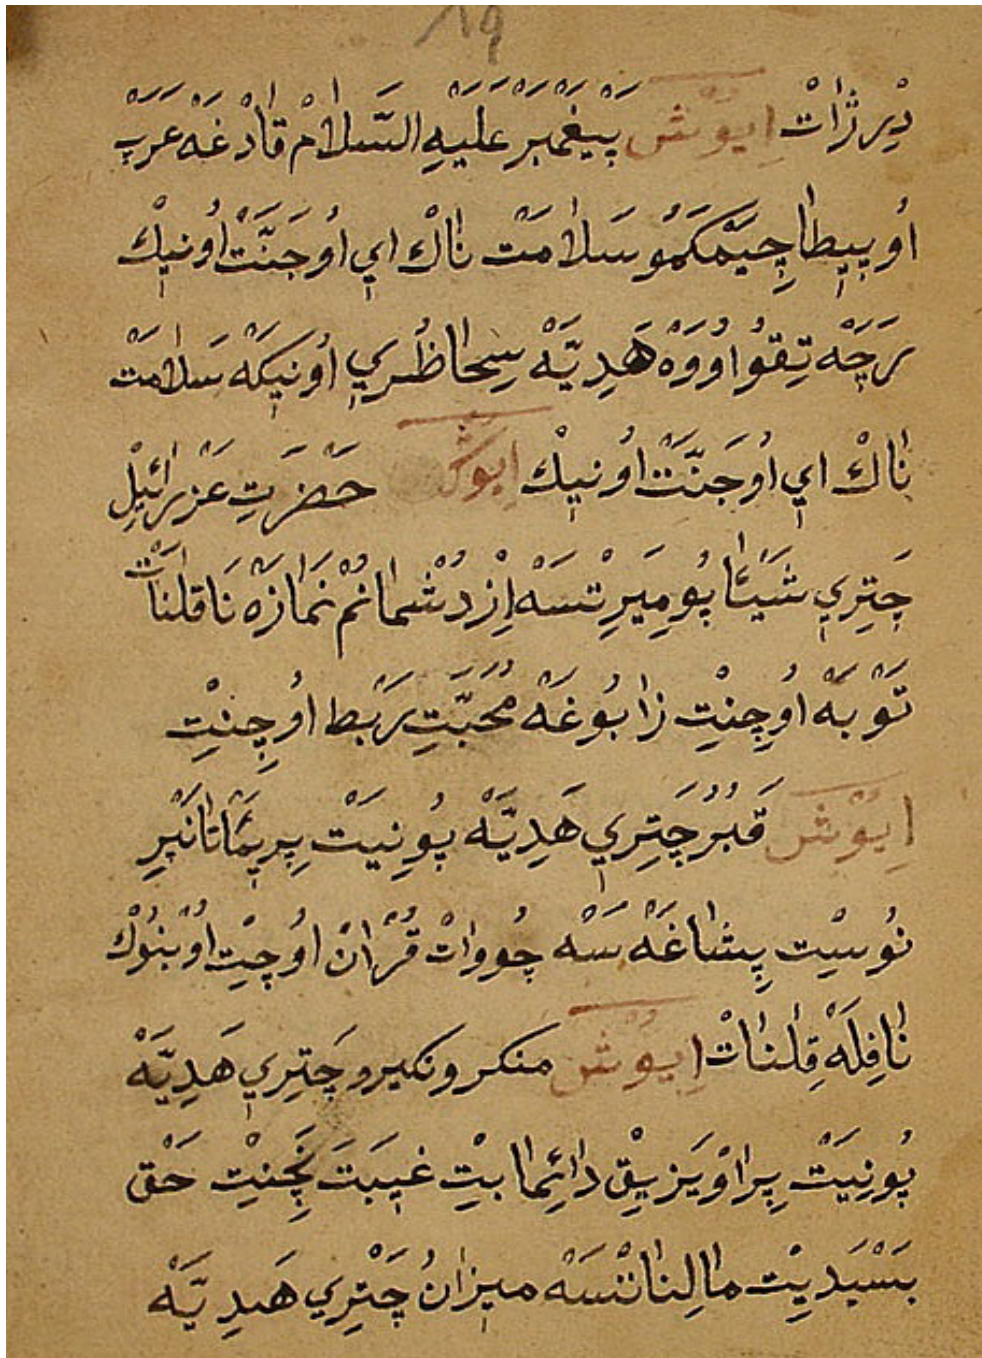 19
دِيْرژَاتْ اِيوُشْ پَيْغَمْبَرْ عَلَيْهِ السَّلَامْ قَادْ غَهْ عَرَبِ
اُوبِيطَا جِيَمْكَمُو سَلَامَتْ نَاكْ اي اُو جَنَّتْ اُونِيكْ
رَچَه تَقْوُا اوُوَهْ هَدِيَّهْ سِحَاظُرِي اُونِيكَهْ سَلَامَتْ
نَاكْ اي اُو جَنَّتْ اُونِيكْ اِيوُشْ حَضْرَتِ عَزْرَائِيلِ
چَتِرِي شَيْتَا پُومِيَرِتْسَهْ اِزْدُشْمَانُمْ نَمَازَهْ نَاقْلَنَاتْ
تَوْبَهْ اُوچِنْتِ زَابُوغَهْ مُحَبَّتِ رَبَط اُوچِنْتِ
اِيوُشْ قَبُرُ چَتِرِي هَدِيَّهْ پُونِيَتْ پِرِيمَاتَانَبِرِ
نُوسِيْت پِشَاغَهْ سَهْ چُووَاتْ قُرْانْ اُوچِيْت اوُبْنُوكْ
نَافِلَهْ قِلَنَاتْ اِيوُشْ منكر ونكيرو چَتِرِي هَدِيَّهْ
پُونِيَتْ پِرَاوْيَزِيقْ دَائِمَا بِيتِ غِيبَتَ نَچِنِيْتِ حَقْ
بَسْيَدِيْت مَالِنَاتْسَهْ مِيزَانُ چَتِرِي هَدِيَّهْ